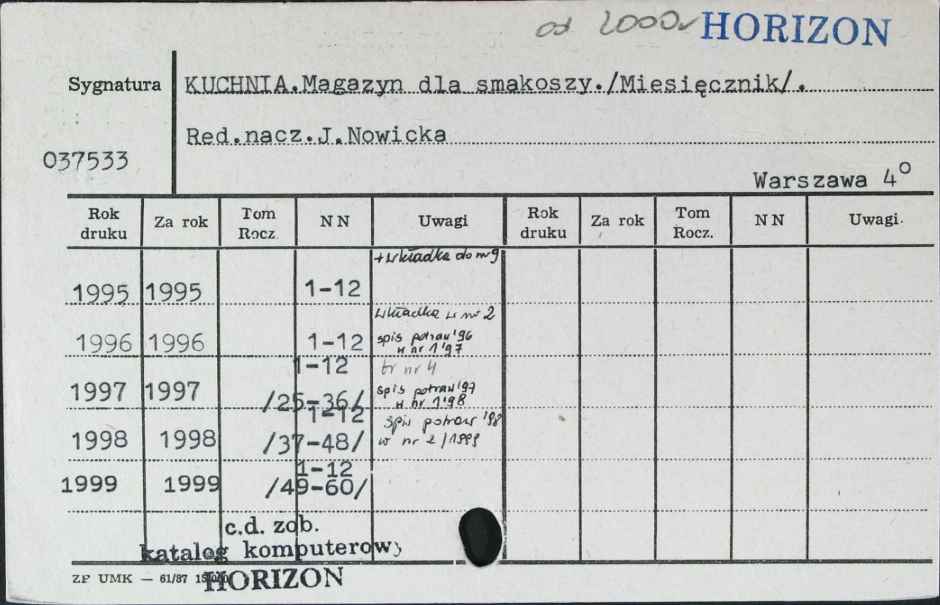 od 2000r HORIZON
Sygnatura KUCHNIA.Magazyn dla smakoszy./Miesięcznik/.
Red.nacz.J.Nowicka
037533
Warszawa 4°
Rok druku Za rok Tom Rocz. N N Uwagi Rok druku Za rok Tom Rocz. N N Uwagi
+wkładka do nr 9
1995 1995 1-12
wkładka w nr 2
1996 1996 1-12 spis potraw '96
w nr 1 '97
1-12 nr 4
1997 1997 /25-36/ spis potraw '97
w nr 1 '98
1-12 spis potraw '98
1998 1998 /37-48/ w nr 2/1999
1-12
1999 1999 /49-60/
c.d. zob.
katalog komputerowy
ZP UMK — 61/87 HORIZON